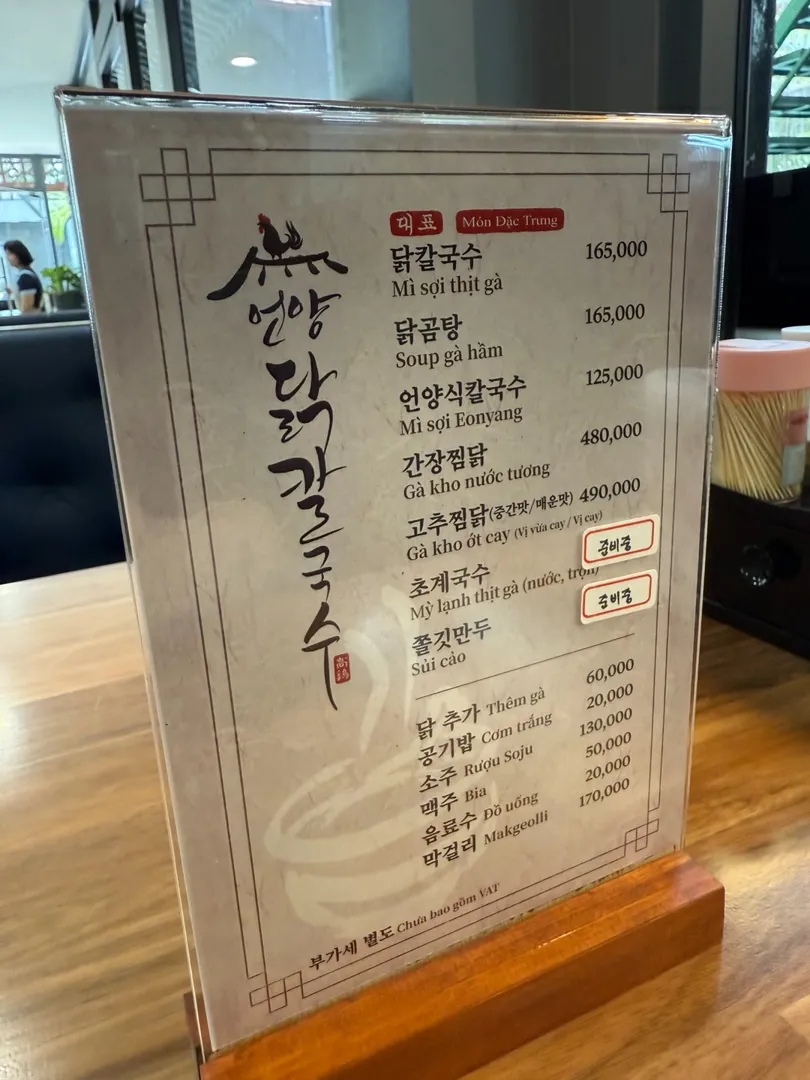 언양
닭
칼
국
수
대표 Món Đặc Trưng
닭칼국수 165,000
Mì sợi thịt gà
닭곰탕 165,000
Soup gà hầm
언양식칼국수 125,000
Mì sợi Eonyang
간장찜닭 480,000
Gà kho nước tương
고추찜닭(중간맛/매운맛) 490,000
Gà kho ớt cay (Vị vừa cay / Vị cay)
초계국수 준비중
Mỳ lạnh thịt gà (nước, trộn)
쫄깃만두 준비중
Sủi cảo
닭 추가 Thêm gà 60,000
공기밥 Cơm trắng 20,000
소주 Rượu Soju 130,000
맥주 Bia 50,000
음료수 Đồ uống 20,000
막걸리 Makgeolli 170,000
부가세 별도 Chưa bao gồm VAT